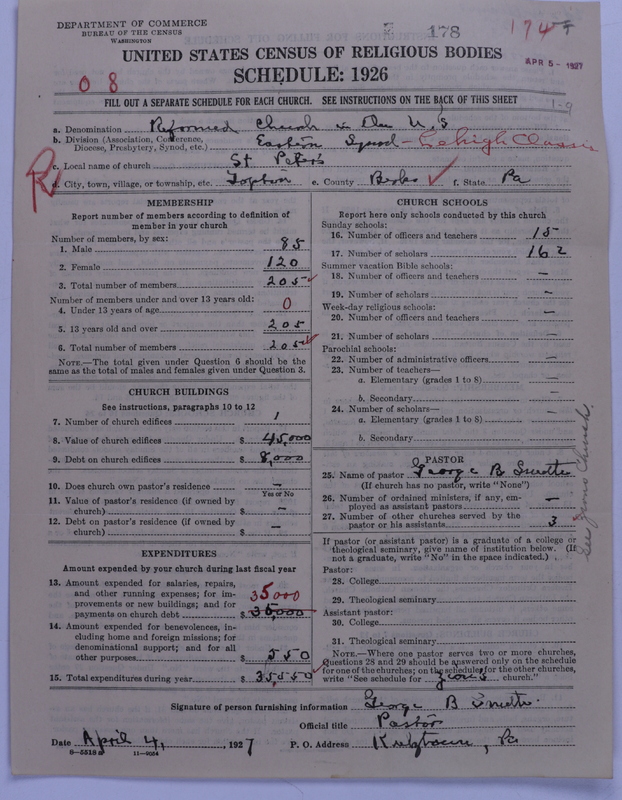 DEPARTMENT OF COMMERCE
BUREAU OF THE CENSUS
WASHINGTON
178
174
UNITED STATES CENSUS OF RELIGIOUS BODIES
APR 5 - 1927
SCHEDULE: 1926
0 8
FILL OUT A SEPARATE SCHEDULE FOR EACH CHURCH. SEE INSTRUCTIONS ON THE BACK OF THIS SHEET
1-9
a. Denomination Reformed Church in the U.S
b. Division (Association, Conference, Diocese, Presbytery, Synod, etc.) Eastern Synod - Lehigh Classis
c. Local name of church St Peter's
d. City, town, village, or township, etc. Topton e. County Berks f. State Pa
R
MEMBERSHIP
Report number of members according to definition of
member in your church
Number of members, by sex:
1. Male 85
2. Female 120
3. Total number of members 205
Number of members under and over 13 years old:
4. Under 13 years of age 0
5. 13 years old and over 205
6. Total number of members 205
NOTE.—The total given under Question 6 should be
same as the total of males and females given under Question 3.
CHURCH BUILDINGS
See instructions, paragraphs 10 to 12
7. Number of church edifices 1
8. Value of church edifices $ 45,000
9. Debt on church edifices $ 8,000
10. Does church own pastor's residence —
Yes or No
11. Value of pastor's residence (if owned by
church) $ —
12. Debt on pastor's residence (if owned by
church) $ —
EXPENDITURES
Amount expended by your church during last fiscal year
13. Amount expended for salaries, repairs,
and other running expenses; for im-
provements or new buildings; and for
payments on church debt $ 35,000
35000
14. Amount expended for benevolences, in-
cluding home and foreign missions; for
denominational support; and for all
other purposes $ 550
15. Total expenditures during year $ 35,550
CHURCH SCHOOLS
Report here only schools conducted by this church
Sunday schools:
16. Number of officers and teachers 15
17. Number of scholars 162
Summer vacation Bible schools:
18. Number of officers and teachers —
19. Number of scholars —
Week-day religious schools:
20. Number of officers and teachers —
21. Number of scholars —
Parochial schools:
22. Number of administrative officers —
23. Number of teachers—
a. Elementary (grades 1 to 8) —
b. Secondary —
24. Number of scholars—
a. Elementary (grades 1 to 8) —
b. Secondary —
PASTOR
25. Name of pastor George B Smith
(If church has no pastor, write "None")
26. Number of ordained ministers, if any, em-
ployed as assistant pastors —
27. Number of other churches served by the
pastor or his assistants 3
See Zions Church.
If pastor (or assistant pastor) is a graduate of a college or
theological seminary, give name of institution below. (If
not a graduate, write "No" in the space indicated.)
Pastor:
28. College
29. Theological seminary
Assistant pastor:
30. College
31. Theological seminary
NOTE.—Where one pastor serves two or more churches,
Questions 28 and 29 should be answered only on the schedule
for one of the churches; on the schedules for the other churches,
write "See schedule for Zion's church."
Signature of person furnishing information George B Smith
Official title Pastor
Date April 4, 1927 P. O. Address Kutztown, Pa
8-5518a 11-9034